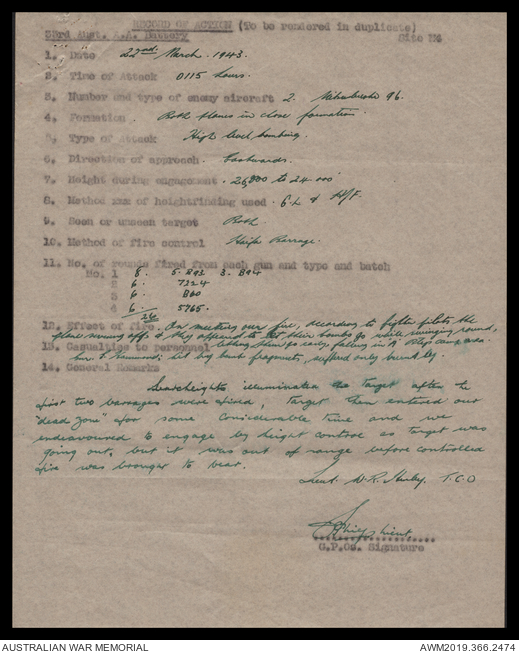 RECORD OF ACTION (To be rendered in duplicate)
53rd Aust. A.A. Battery Site
1. Date 22nd March. 1943.
2. Time of Attack 0115 hours.
3. Number and type of enemy aircraft 2. Mitsubushi 96.
4. Formation. Both planes in close formation.
5. Type of Attack High level bombing.
6. Direction of approach. Eastwards.
7. Height during engagement. 26,800 to 24,000
8. Method xxx of heightfinding used. G.L & H/F.
9. Seen or unseen target Both.
10. Method of fire control Barrage.
11. No. of rounds fired from each gun and type and batch
No. 1 8. 5. B93 3. B94
2 6. 7324
3 6. B60
4 6. 5765.
26
12. Effect of fire. On meeting our fire, according to fighter pilots the
plane swung off & they appeared to let their bombs go while swinging round,
13. Casualties to personnel letting them go early falling in camp area.
hit by bomb fragments, suffered only leg.
14. General Remarks
Searchlights illuminated the Target after the
first two barrages were fired, Target then entered our
"dead zone" for some considerable time and we
endeavoured to engage by height control as target was
going out, but it was out of range before controlled
fire was brought to bear.
Lieut. W.R. T.C.O
Lieut
G.P.Os. Signature
AUSTRALIAN WAR MEMORIAL
AWM2019.366.2474